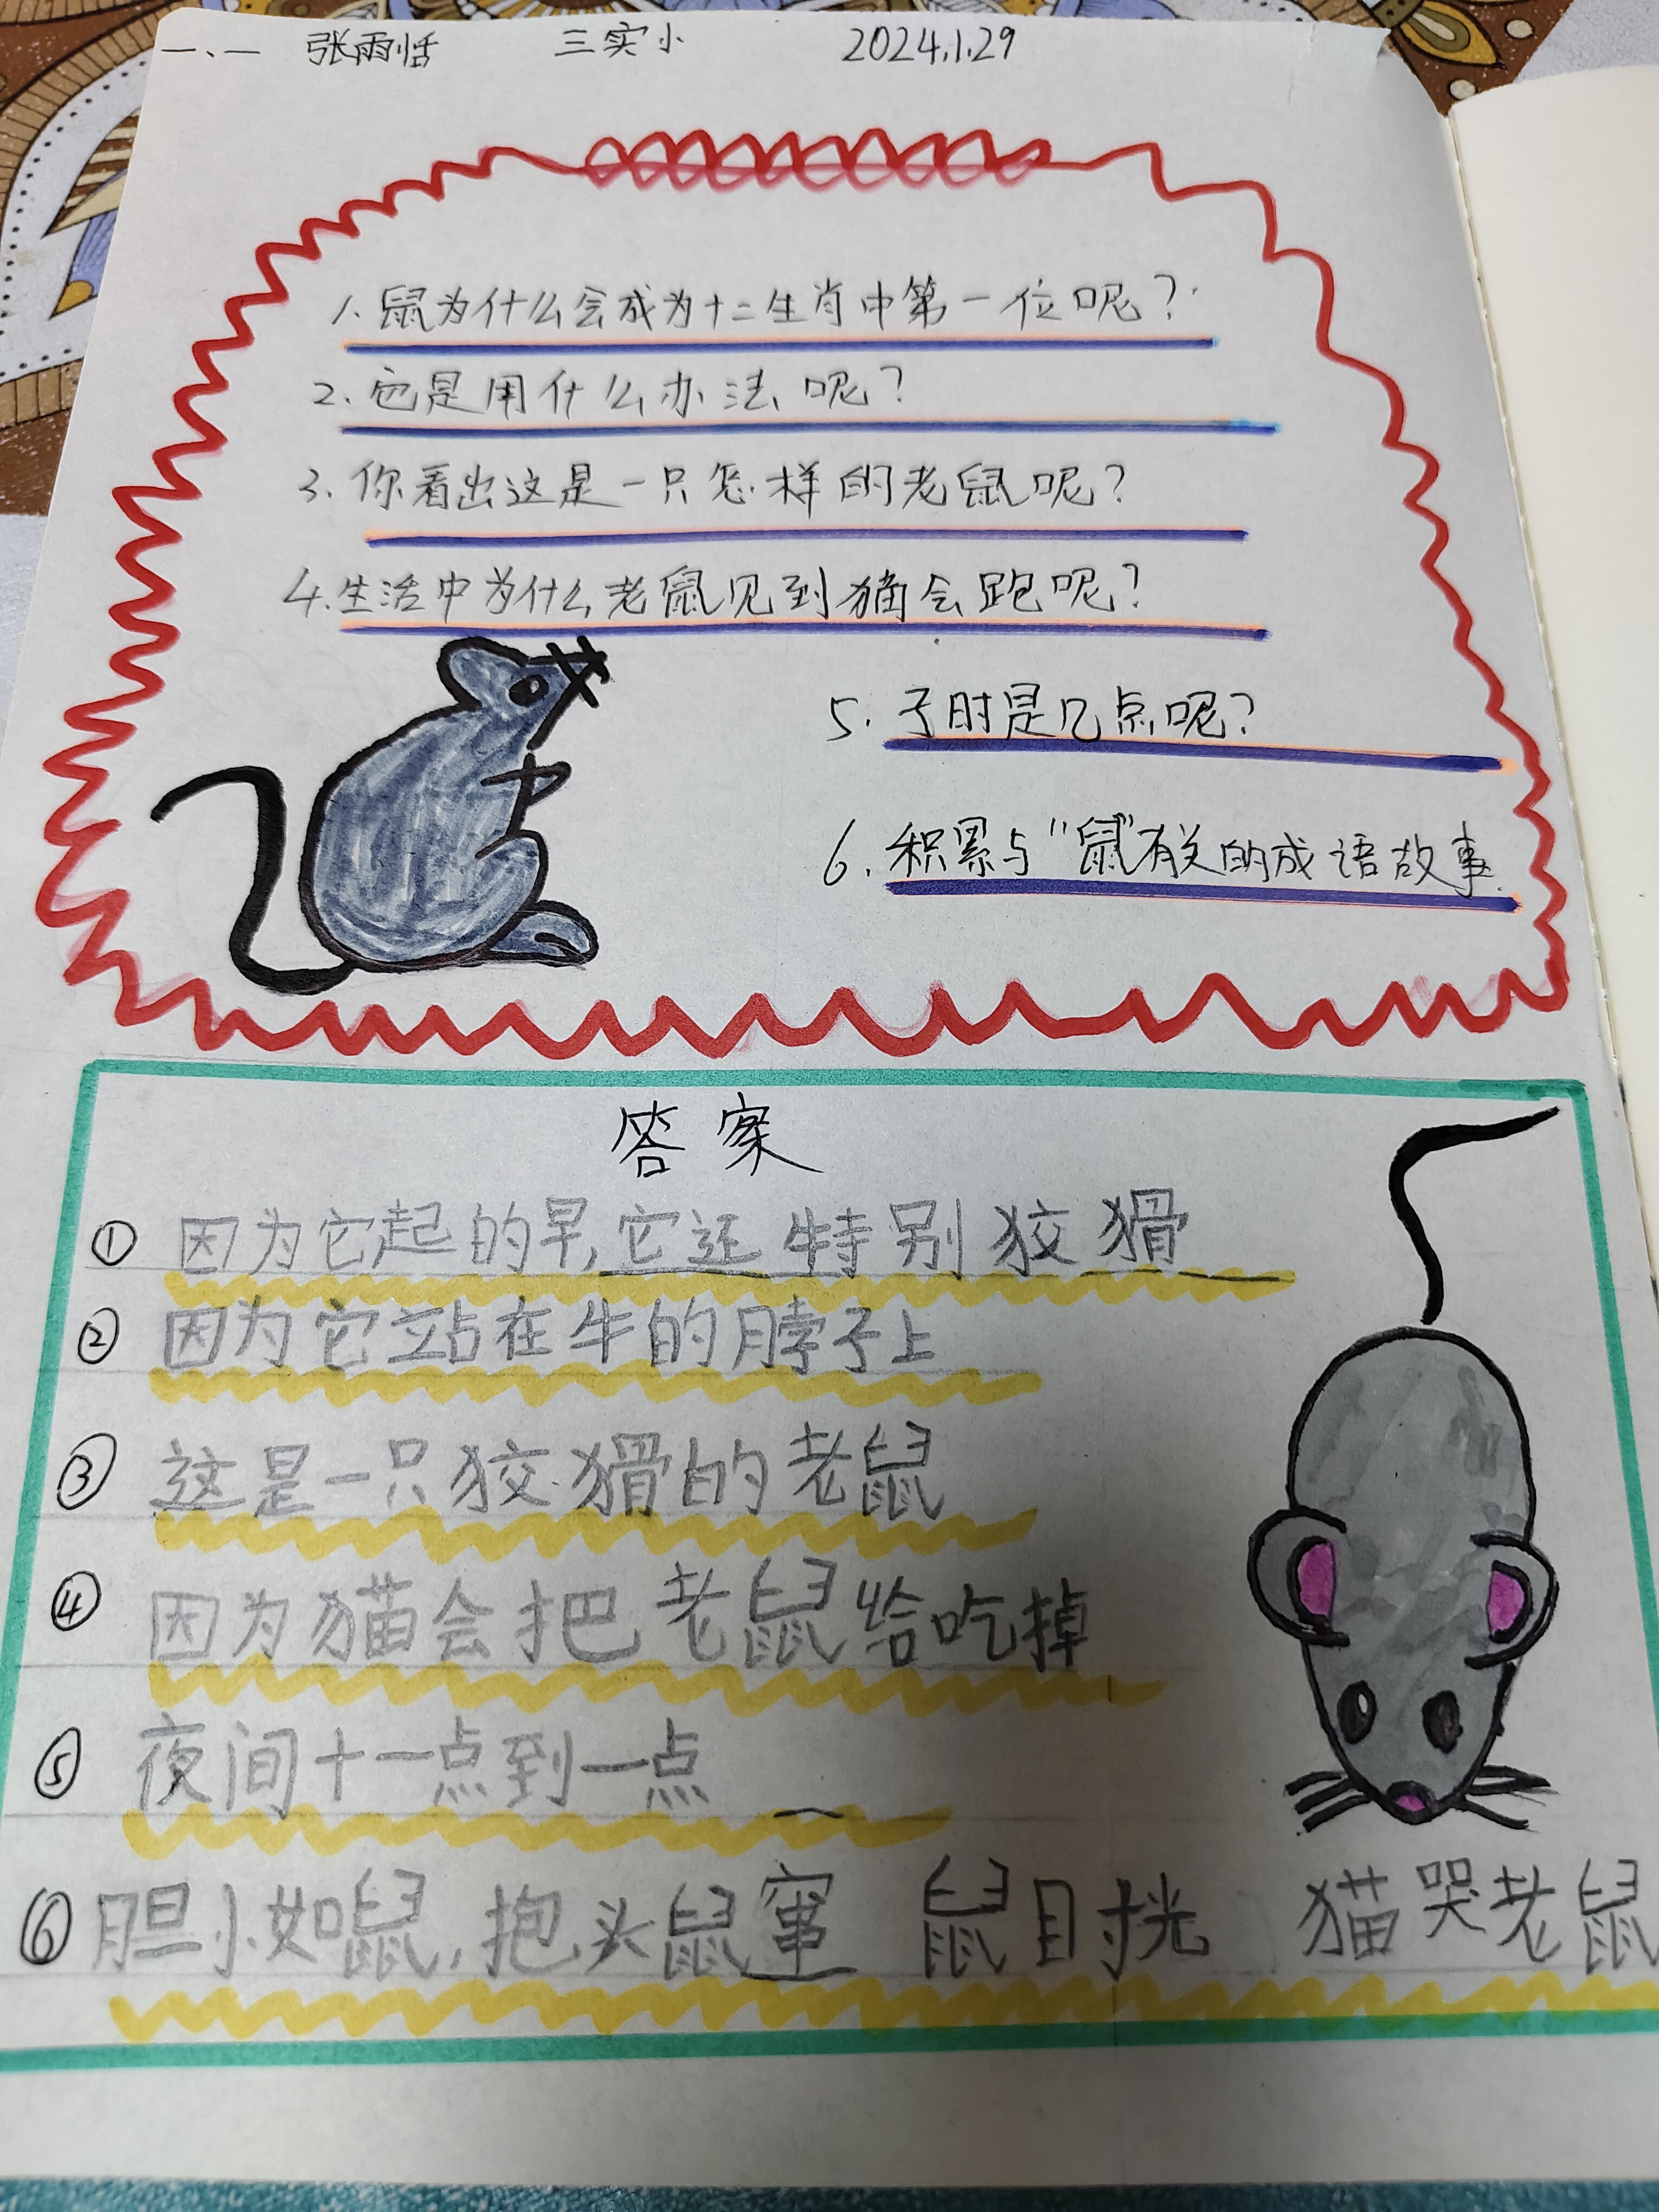 一、一 张雨恬 三实小 2024.1.29
1. 鼠为什么会成为十二生肖中第一位呢?
2. 它是用什么办法呢?
3. 你看出这是一只怎样的老鼠呢?
4. 生活中为什么老鼠见到猫会跑呢?
5. 子时是几点呢?
6. 积累与“鼠”有关的成语故事.
答案
① 因为它起的早,它还特别狡猾
② 因为它站在牛的脖子上
③ 这是一只狡猾的老鼠
④ 因为猫会把老鼠给吃掉
⑤ 夜间十一点到一点
⑥ 胆小如鼠,抱头鼠窜 鼠目寸光 猫哭老鼠